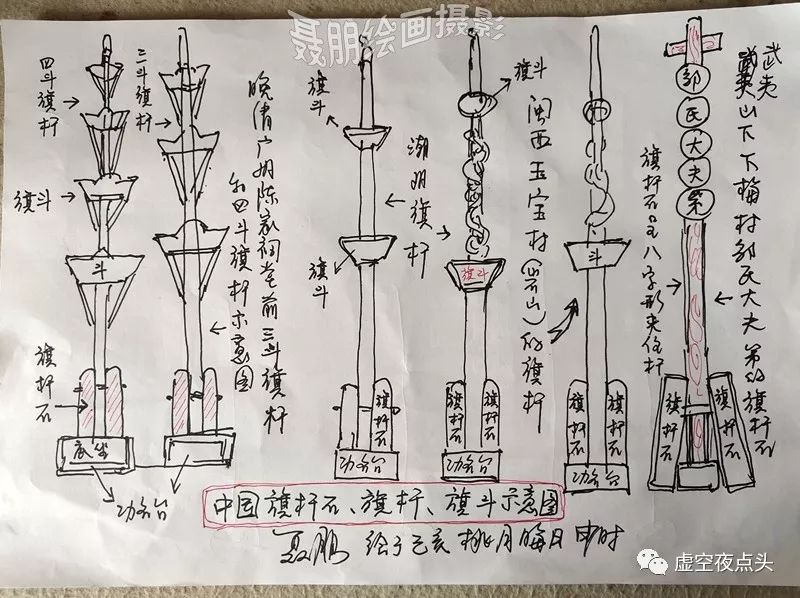 聂朋绘画摄影
四斗旗杆
三斗旗杆
旗斗
斗
旗杆石
底坐
功名台
晚清广州陈家祠堂前三斗旗杆
和四斗旗杆示意图
旗斗
旗斗
潮州旗杆
旗杆石
功名台
旗斗
旗斗
旗杆石
旗杆石
功名台
闽西玉宝村(器山)的旗杆
斗
旗杆石
旗杆石
功名台
邹氏大夫第
旗杆石呈八字形夹住杆
旗杆石
旗杆石
武夷
山下下梅村邹氏大夫第的旗杆石
中国旗杆石、旗杆、旗斗示意图
聂鹏 绘于己亥桃月晦日申时
虚空夜点头